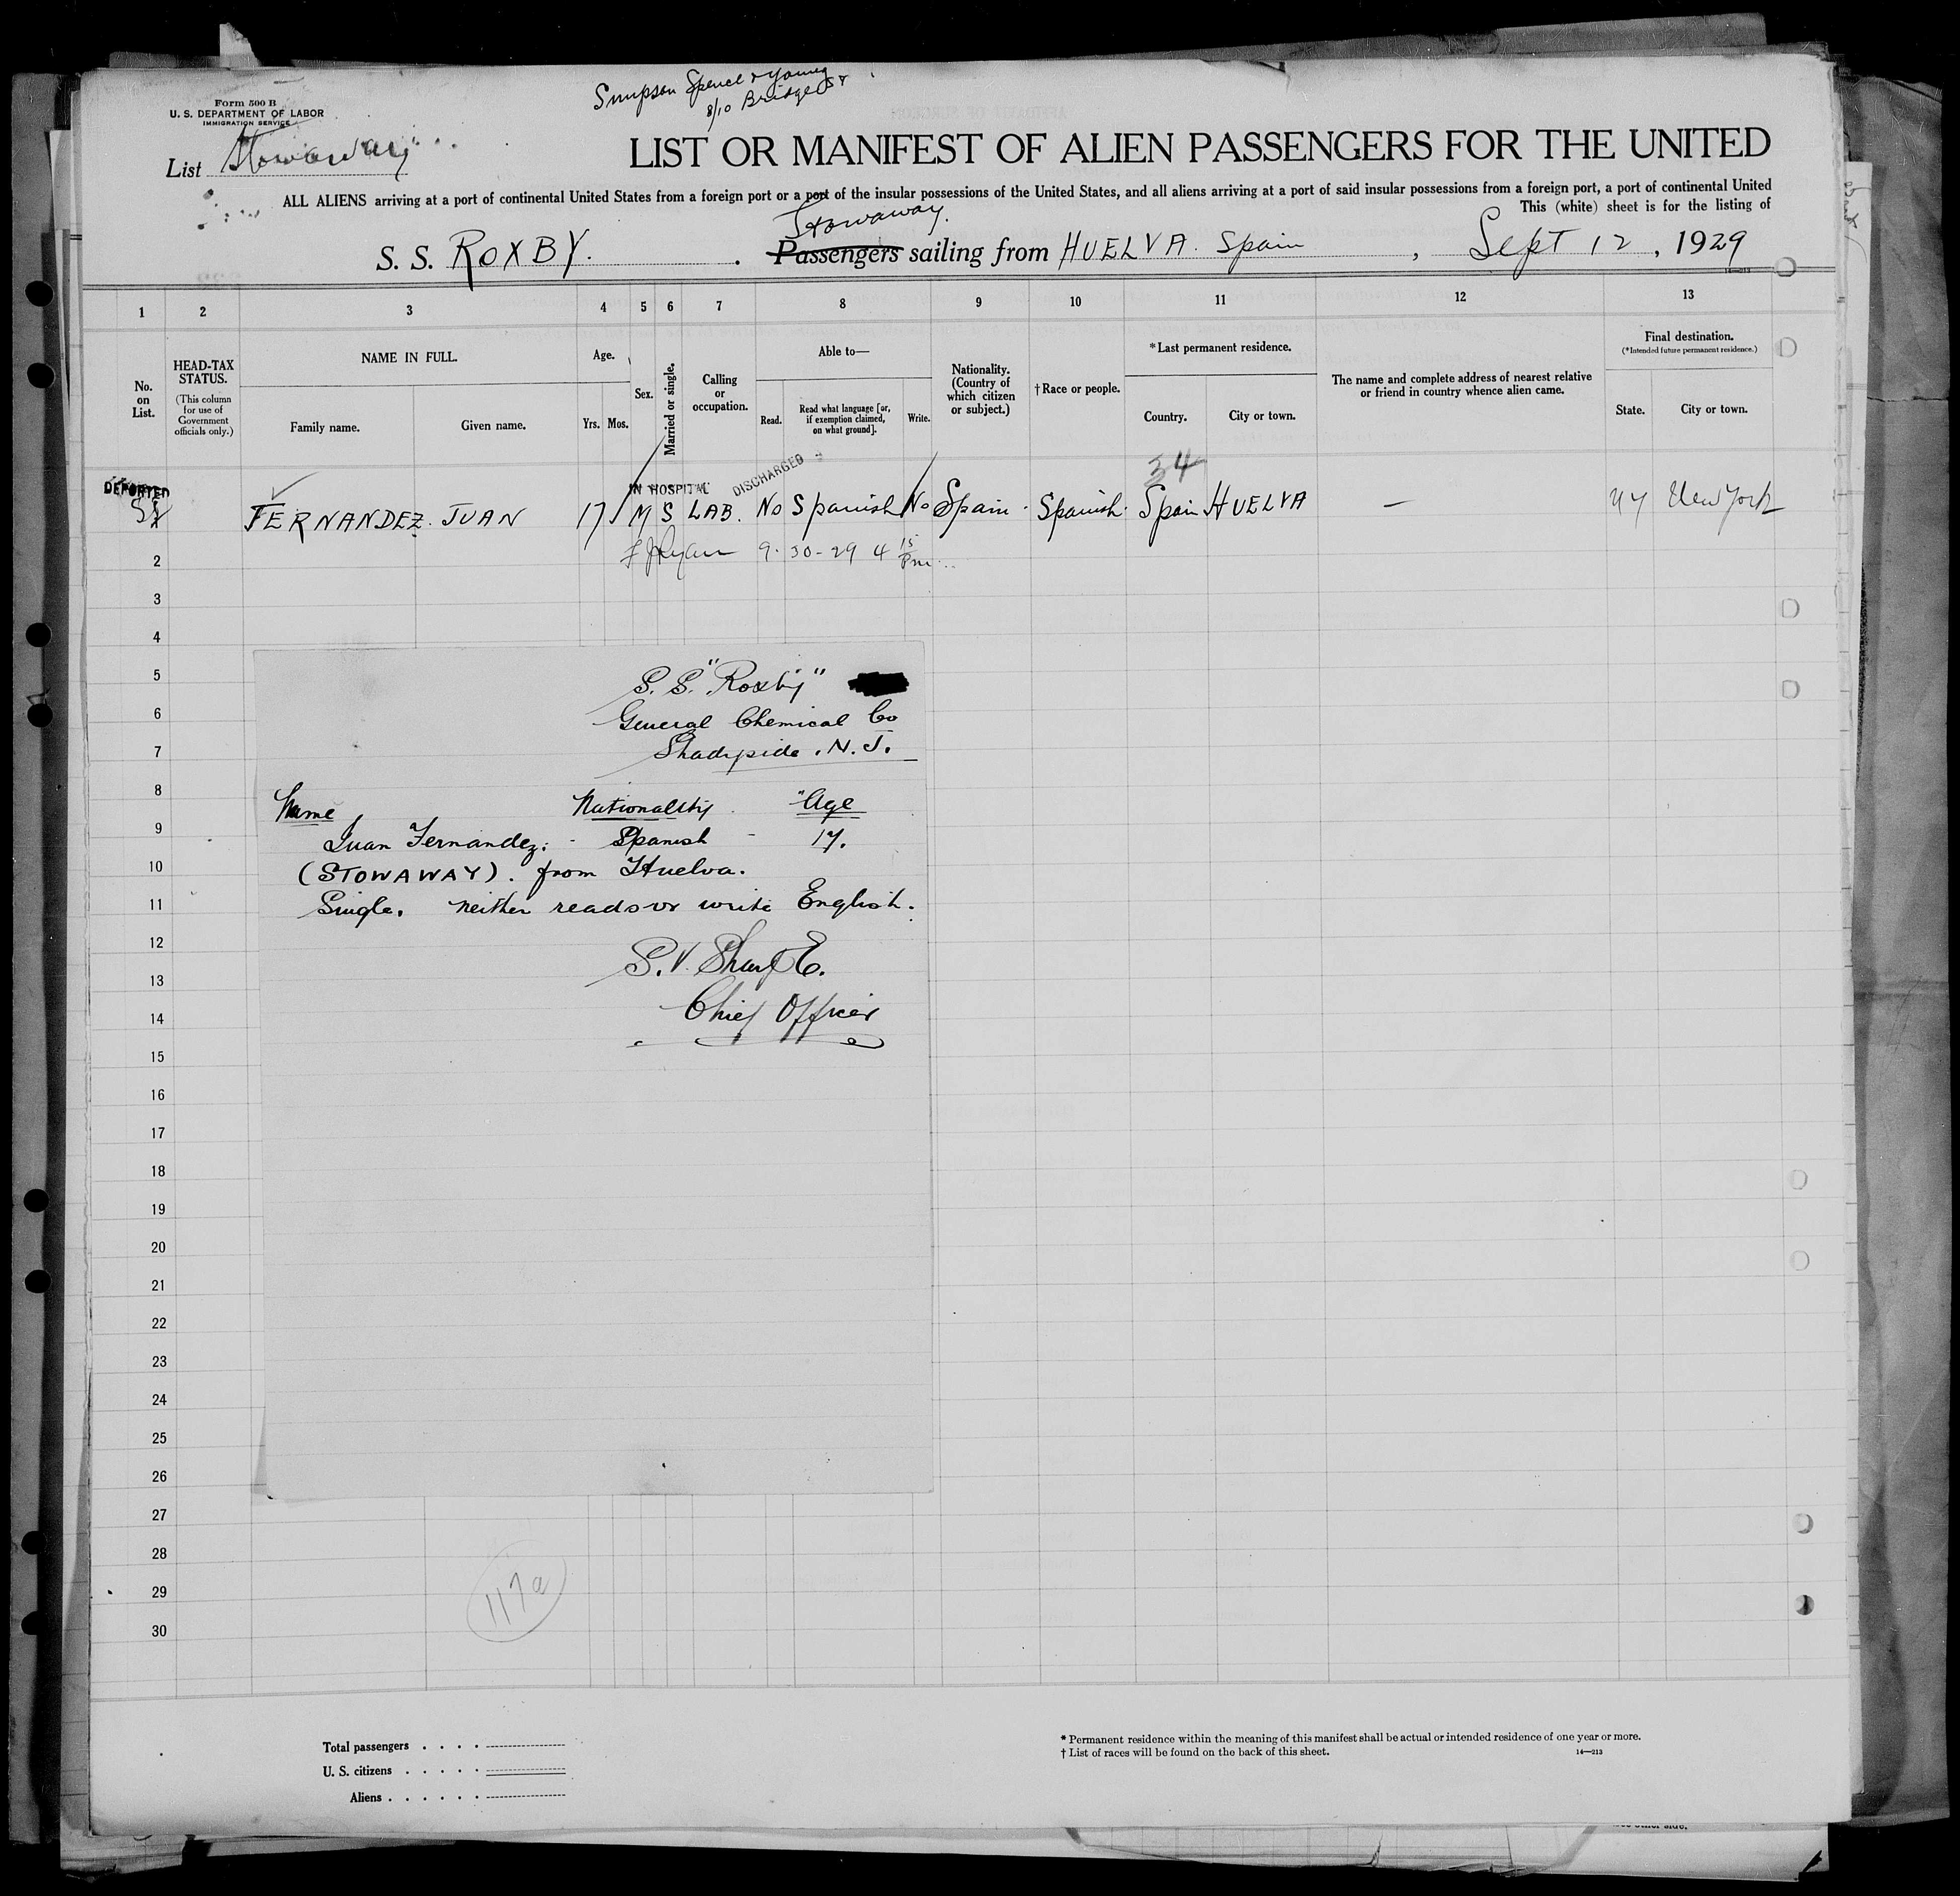 Simpson Spence & Young
8/10 Bridge St
Form 500 B
U. S. DEPARTMENT OF LABOR
IMMIGRATION SERVICE
List Stowaway
LIST OR MANIFEST OF ALIEN PASSENGERS FOR THE UNITED
ALL ALIENS arriving at a port of continental United States from a foreign port or a port of the insular possessions of the United States, and all aliens arriving at a port of said insular possessions from a foreign port, a port of continental United
This (white) sheet is for the listing of
Stowaway.
S. S. ROXBY. Passengers sailing from HUELVA. Spain, Sept 12, 1929
14—213
1 2 3 4 5 6 7 8 9 10 11 12 13
No. on List.
HEAD-TAX STATUS.
(This column for use of Government officials only.)
NAME IN FULL.
Family name. Given name.
Age.
Yrs. Mos.
Sex.
Married or single.
Calling or occupation.
Able to—
Read. Read what language [or, if exemption claimed, on what ground]. Write.
Nationality. (Country of which citizen or subject.)
†Race or people.
*Last permanent residence.
Country. City or town.
The name and complete address of nearest relative or friend in country whence alien came.
Final destination.
(*Intended future permanent residence.)
State. City or town.
34
DEPORTED IN HOSPITAL DISCHARGED
FERNANDEZ. JUAN 17 M S LAB. No Spanish No Spain. Spanish. Spain HUELVA — NY New York
2 9-30-29 4 15 Pm
3
4
5
6
7
8
9
10
11
12
13
14
15
16
17
18
19
20
21
22
23
24
25
26
27
28
29
30
S. S. "Roxby"
General Chemical Co
Shadyside. N. J.
Name Nationality Age
Juan Fernandez. - Spanish - 17.
(STOWAWAY). from Huelva.
Single. Neither reads or write English.
Chief Officer
117a
Total passengers . . . .
U. S. citizens . . . . .
Aliens . . . . . .
* Permanent residence within the meaning of this manifest shall be actual or intended residence of one year or more.
† List of races will be found on the back of this sheet.
14—213